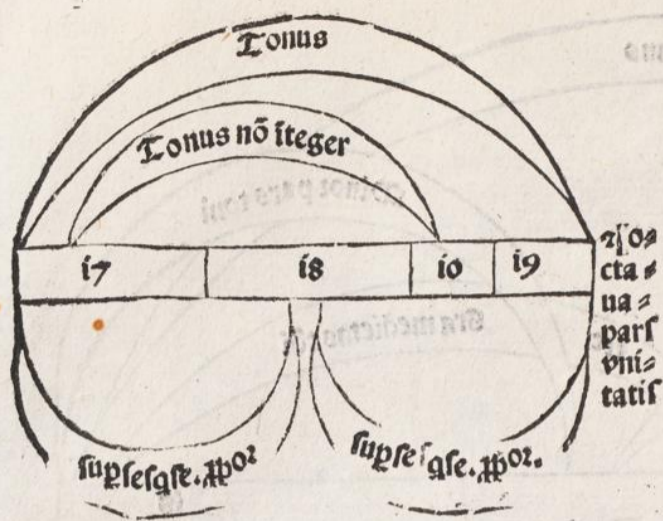 Tonus
Tonus nō īteger
i7 i8 i0 i9
⁊ o⸗
cta⸗
ua⸗
parſ
vni⸗
tatiſ
ſuꝑſeſqſe. ꝓpoꝛ ſuꝑſeſqſe. ꝓpoꝛ.